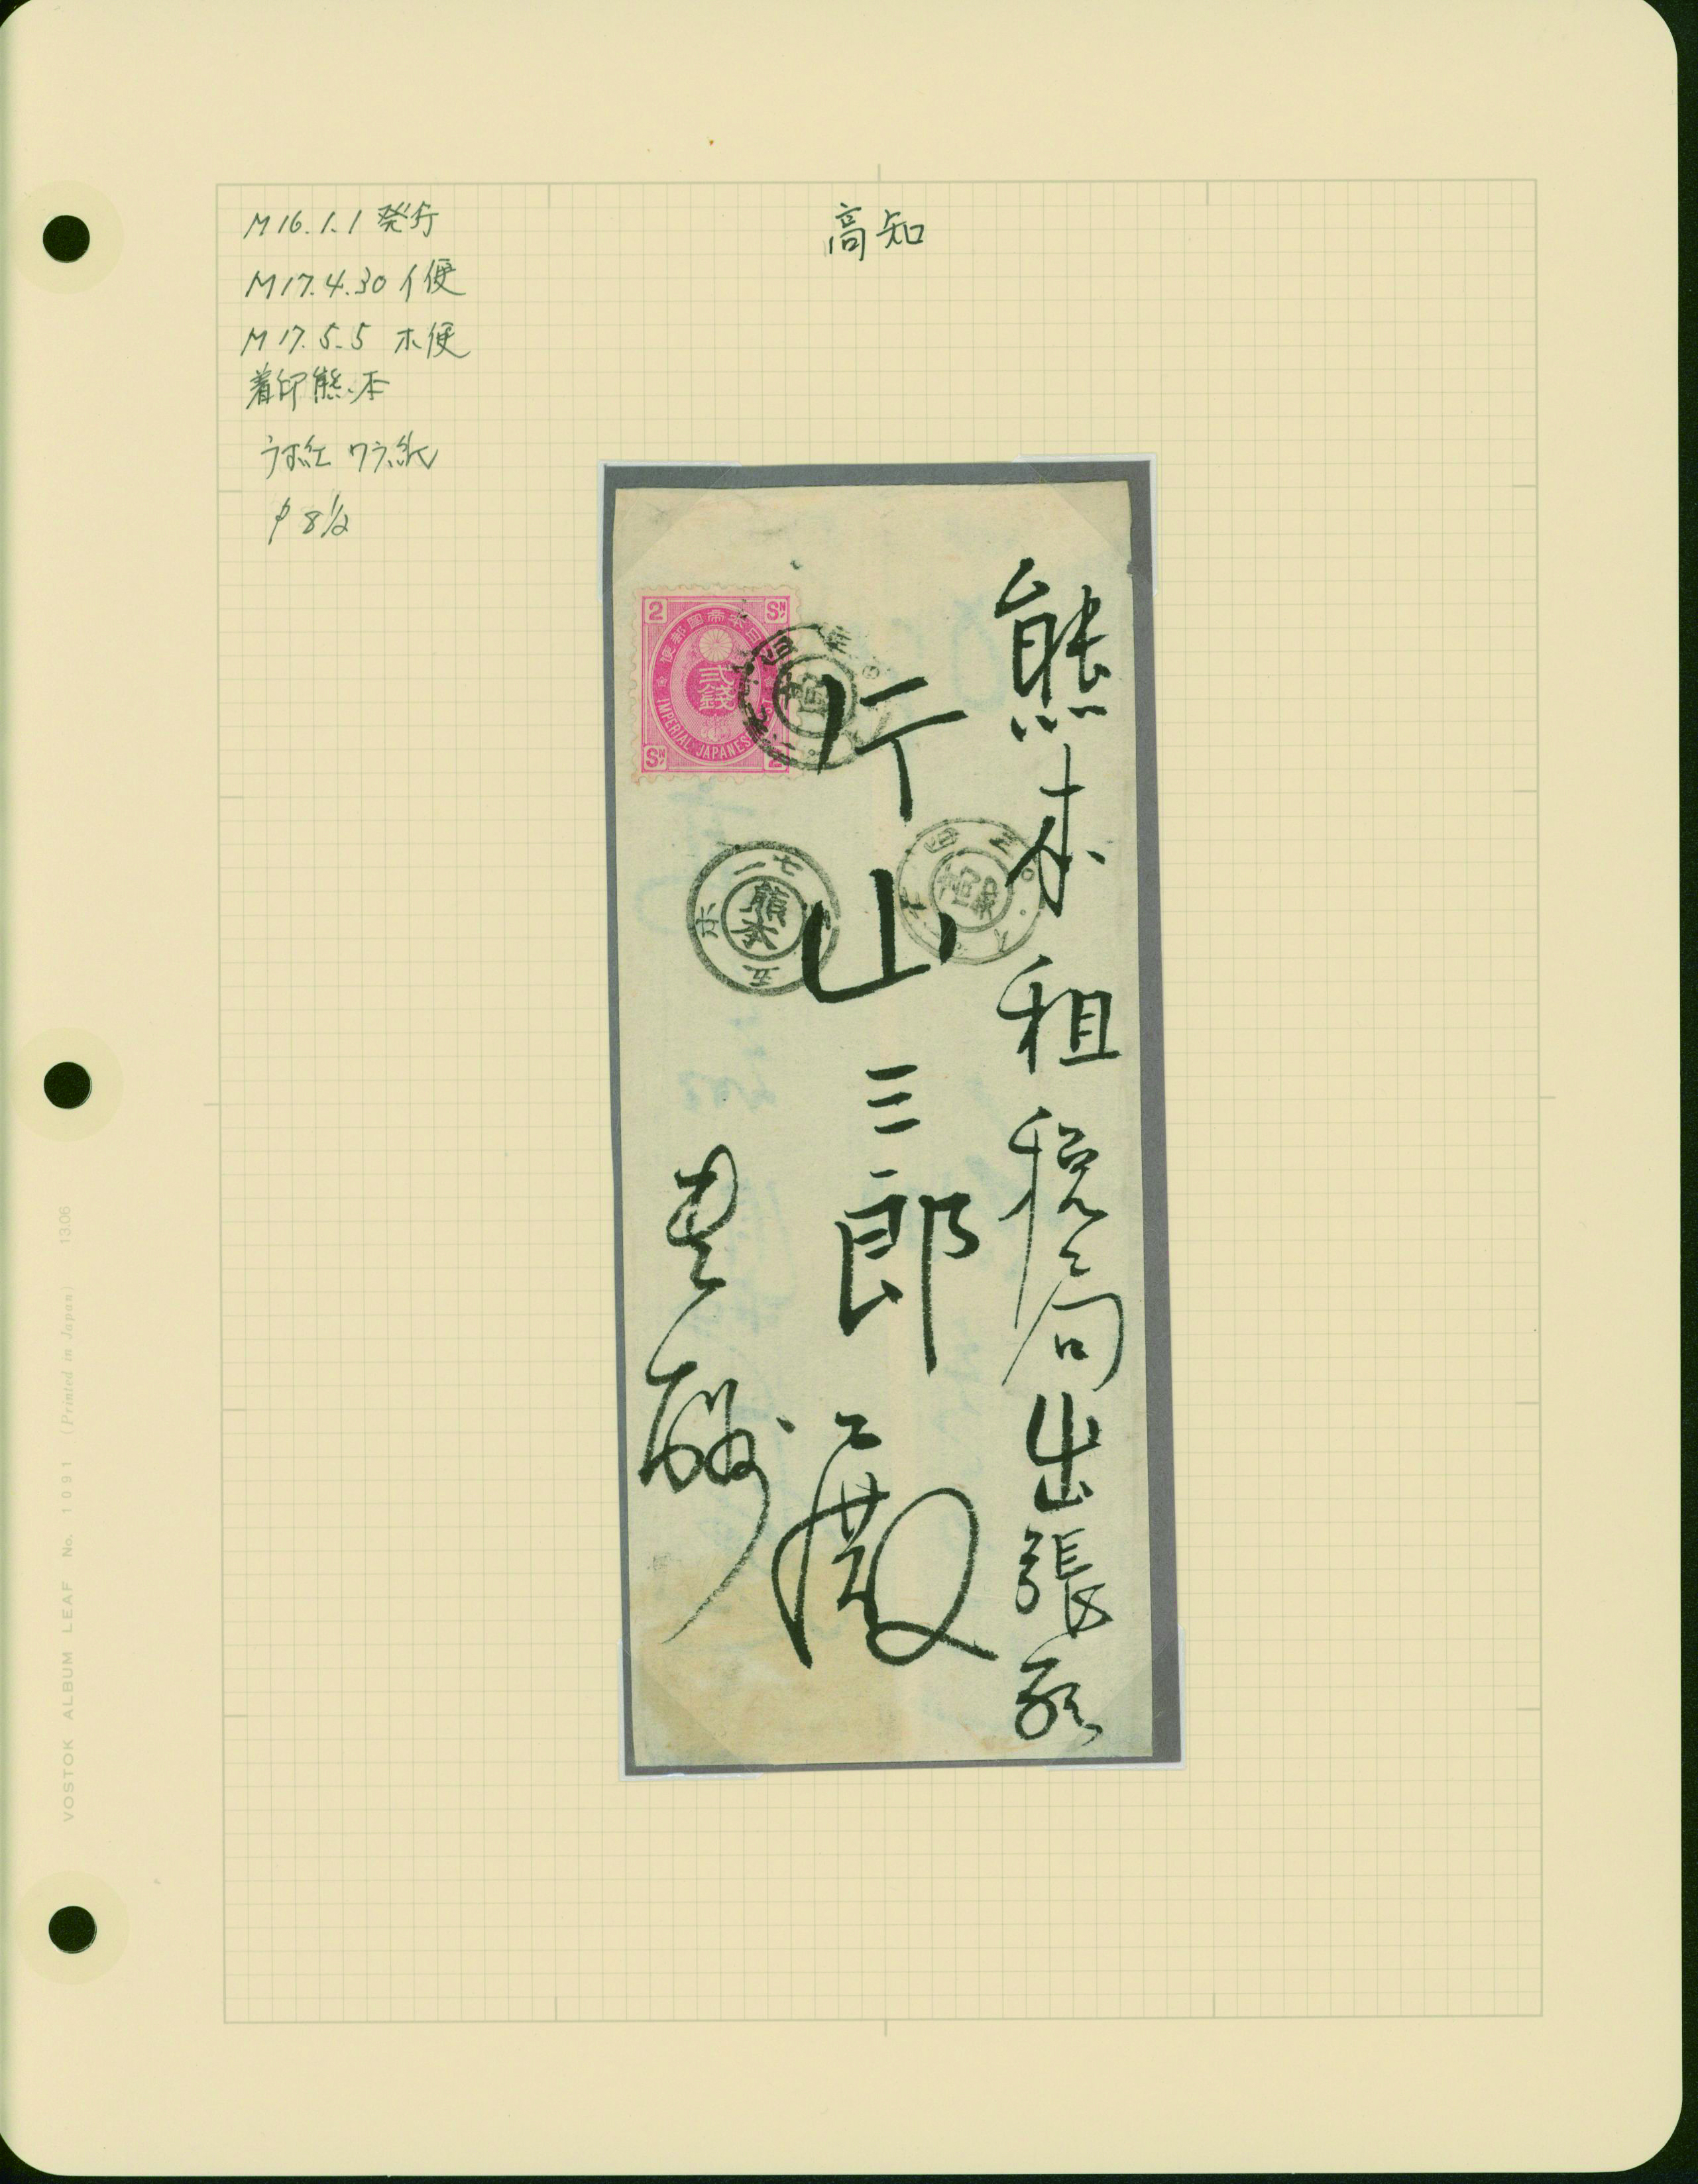 M16.1.1 発行
M17.4.30 イ便
M17.5.5 ホ便
着印 熊本
うす紅 ワラ紙
P 8½
高知
2 SN
大日本帝国郵便
弐銭
IMPERIAL JAPANESE
SN 2
熊本租税局出張所
片山三郎殿
一七
熊本
ホ
五
高知
VOSTOK ALBUM LEAF No. 1091 (Printed in Japan) 13.06